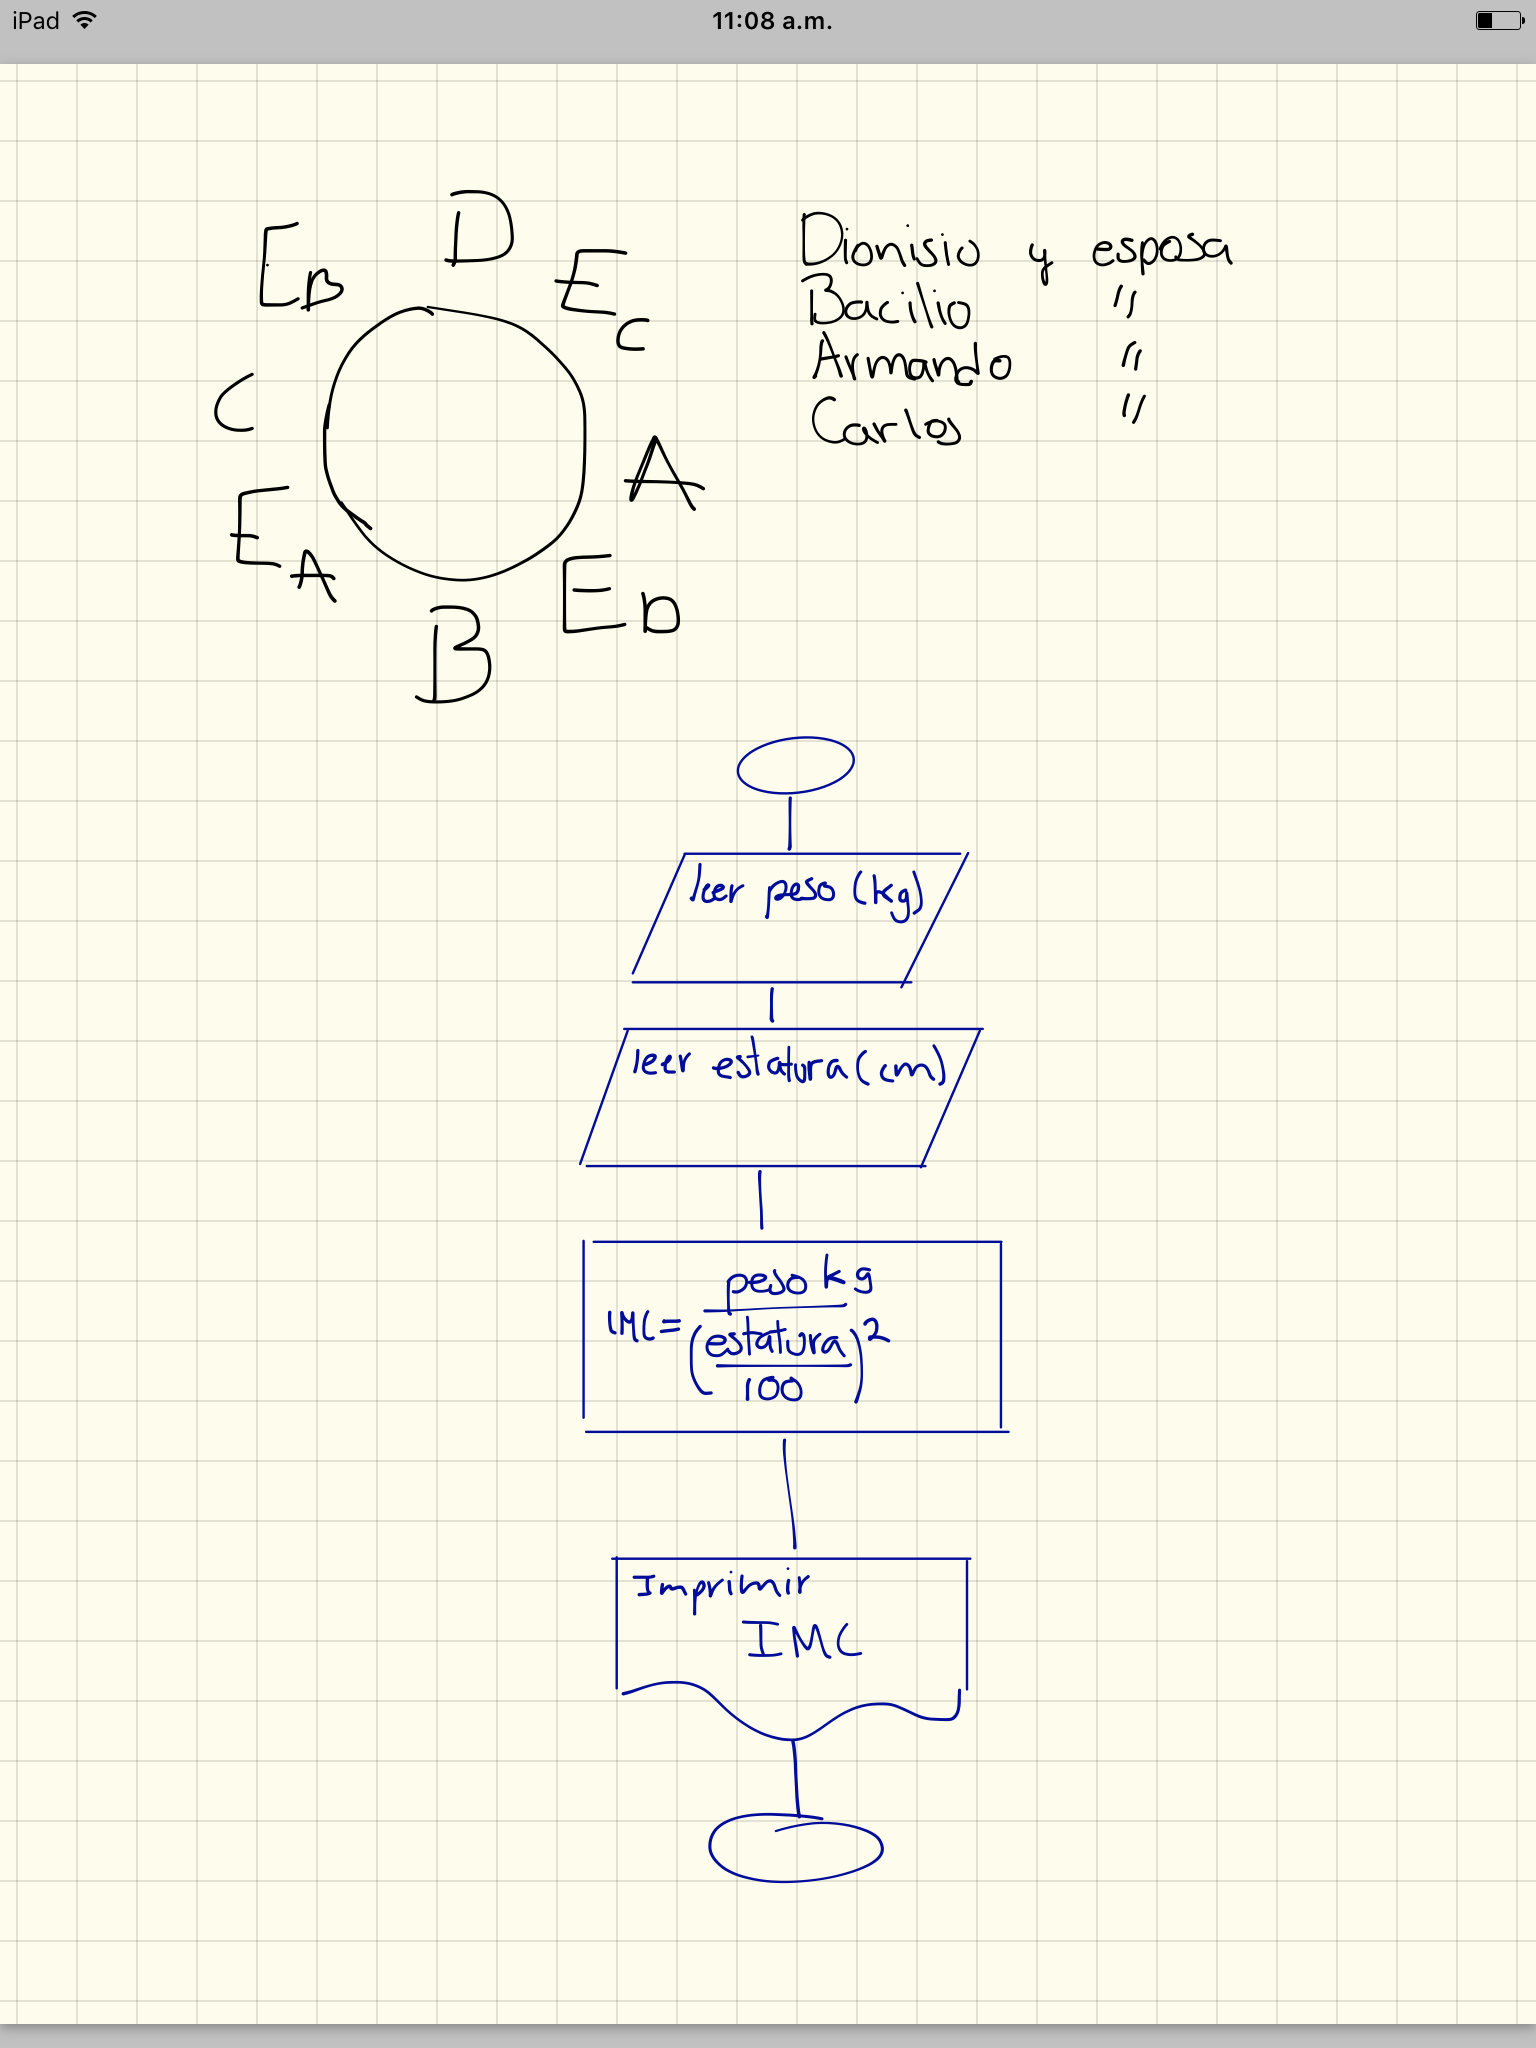 iPad
11:08 a.m.
D
E_B
E_C
C
A
E_A
E_D
B
Dionisio y esposa
Bacilio "
Armando "
Carlos "
leer peso (kg)
leer estatura (cm)
peso kg
IMC =
(estatura)²
100
Imprimir
IMC